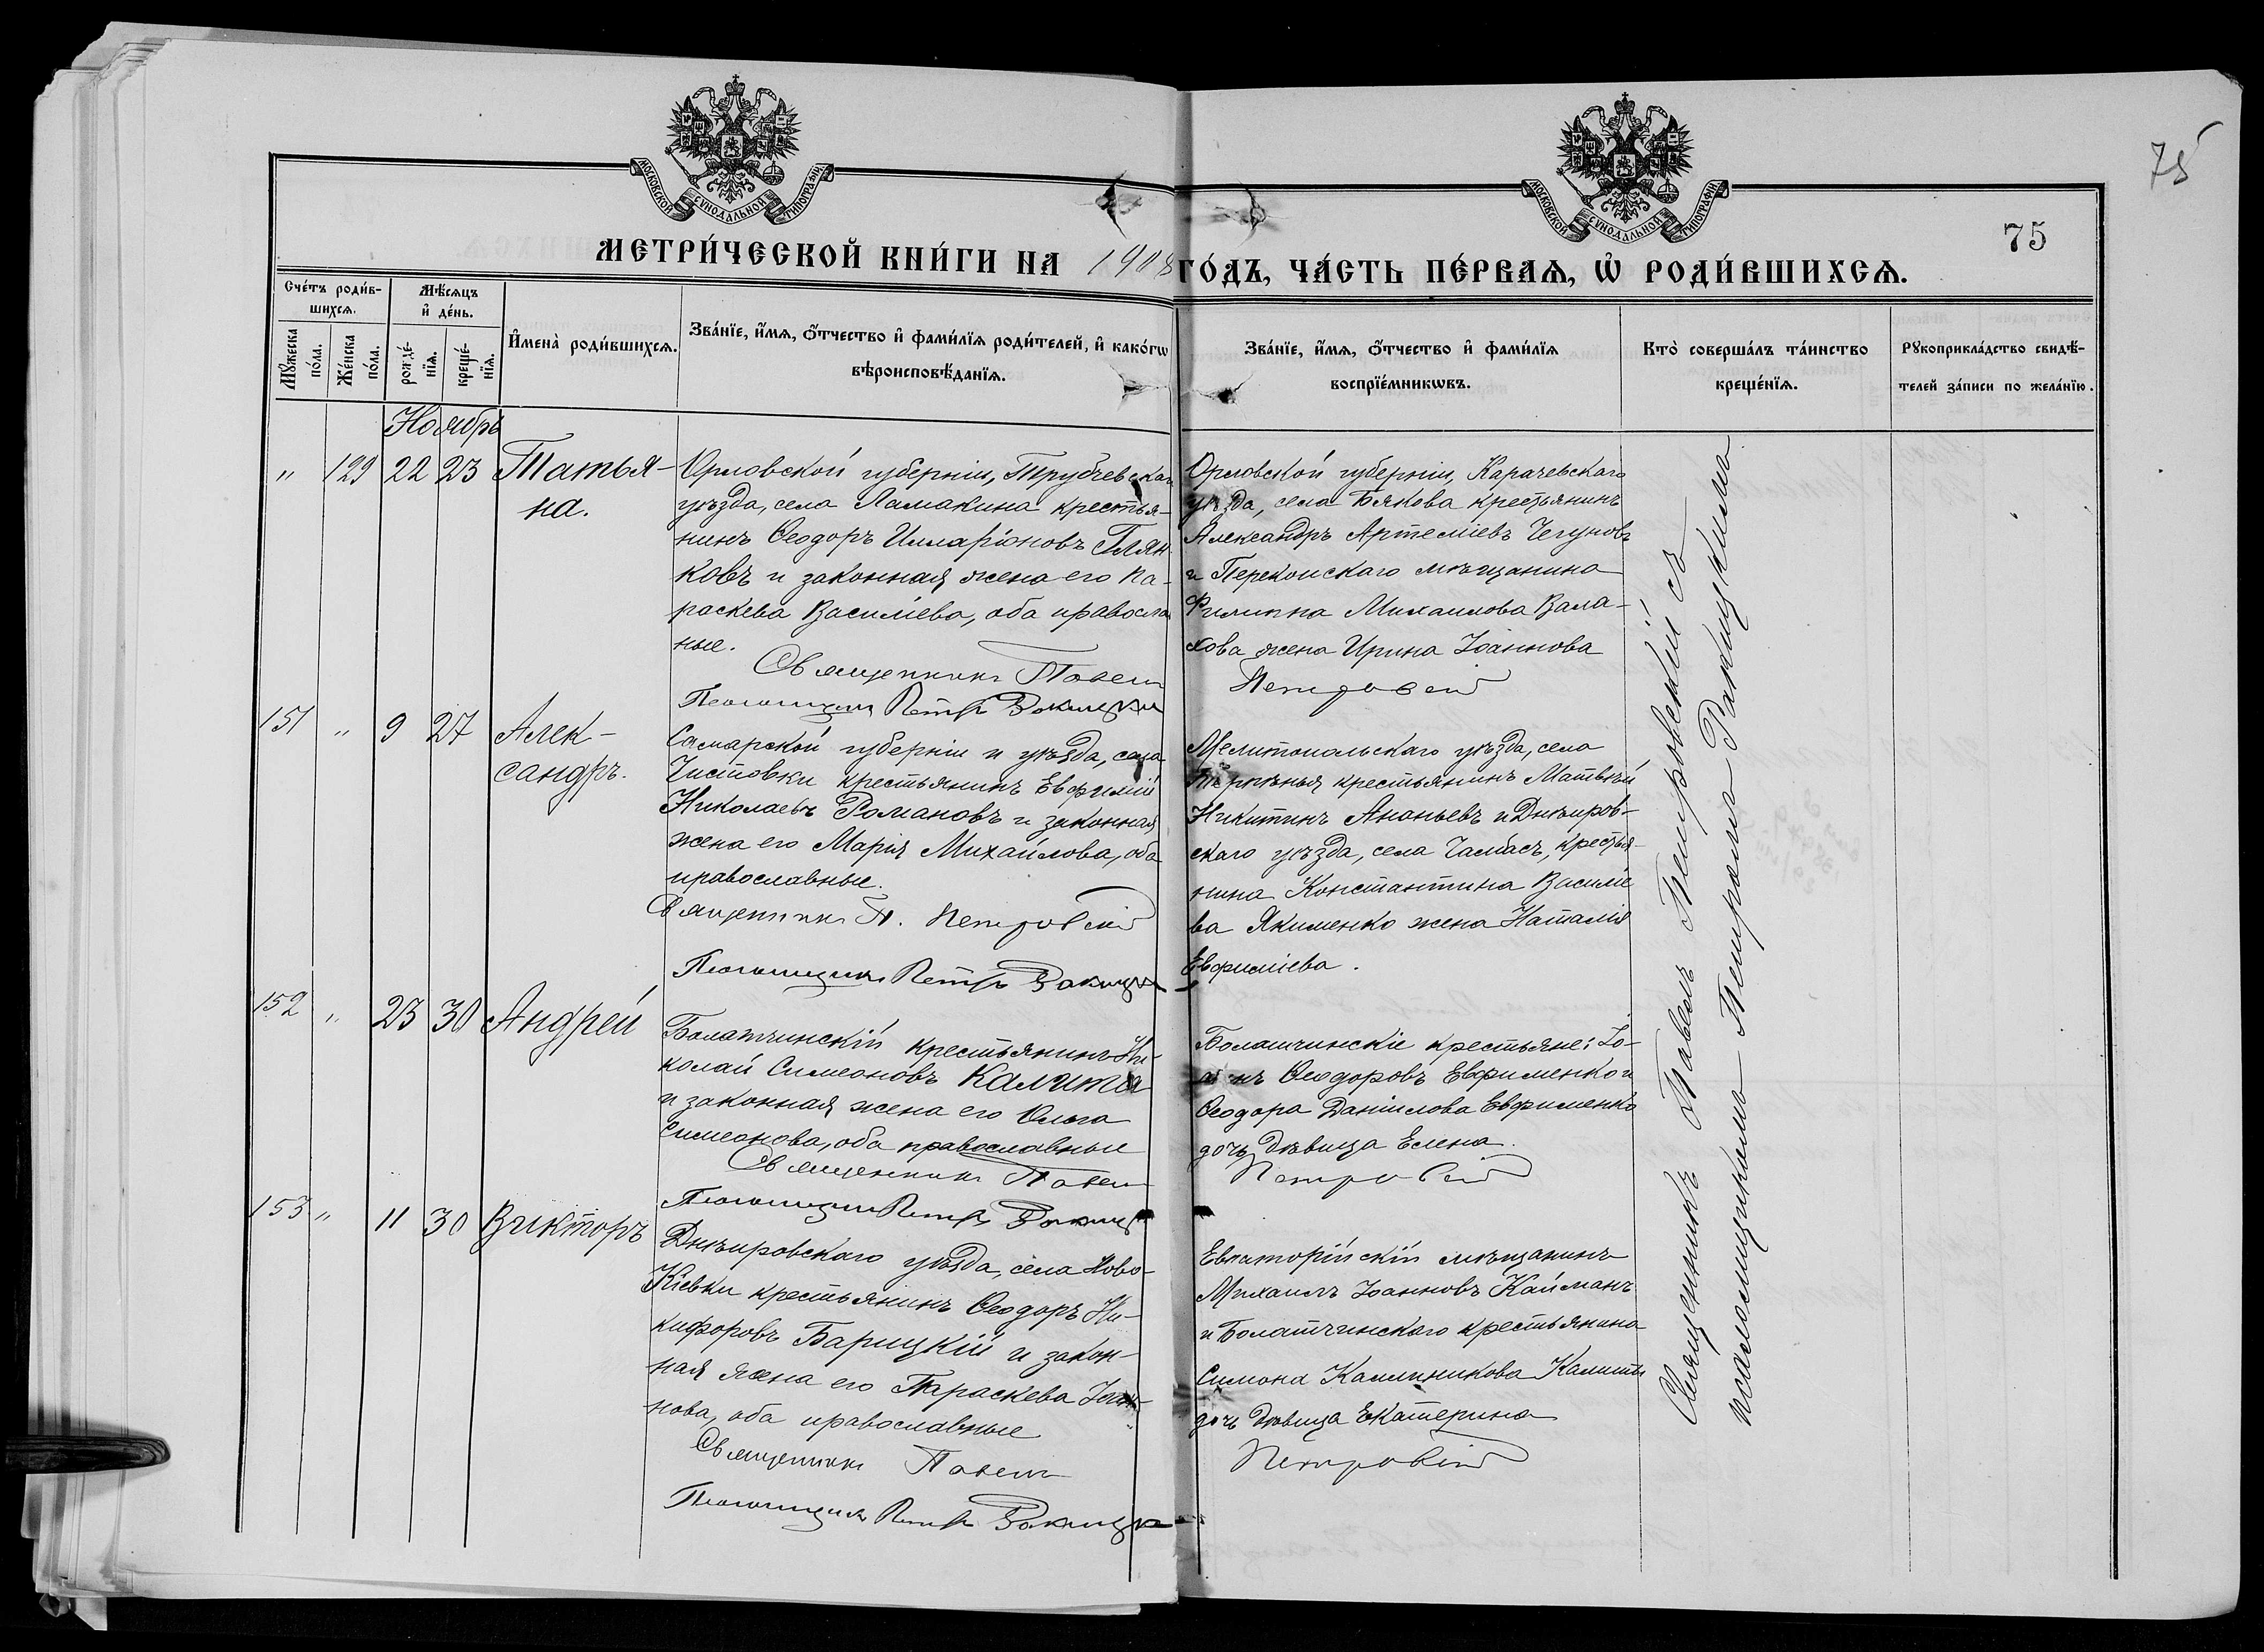 75
МОСКОВСКОЙ СѴНОДАЛЬНОЙ ТИПОГРАФІИ
МОСКОВСКОЙ СѴНОДАЛЬНОЙ ТИПОГРАФІИ
75
МЕТРИ́ЧЕСКОЙ КНИ́ГИ НА 1908 ГО́ДЪ, ЧА́СТЬ ПЕ́РВАѦ, Ѡ҆ РОДИ́ВШИХСѦ.
Сче́тъ роди́в-
шихсѧ.
Мꙋ́жеска по́ла.
Же́нска по́ла.
Мѣ́сѧцъ
и҆ де́нь.
рожде́-нїѧ.
креще́-нїѧ.
И҆мена̀ роди́вшихсѧ.
Зва́нїе, и҆́мѧ, ѻ҆́тчество и҆ фами́лїѧ роди́телей, и҆ како́гѡ
вѣроисповѣ́данїѧ.
Зва́нїе, и҆́мѧ, ѻ҆́тчество и҆ фами́лїѧ
воспрїе́мникѡвъ.
Кто̀ соверша́лъ та́инство
креще́нїѧ.
Рꙋкоприкла́дство свидѣ́-
телей за́писи по жела́нїю.
Ноябрь
" 129 22 23 Татья-
на.
Орловской губерніи, Трубчевскаго
уѣзда, села Ламакина крестья-
нинъ Ѳеодоръ Илларіоновъ Глян-
ковъ и законная жена его Па-
раскева Василіева, оба православ
ные.
Священникъ Павелъ
Псаломщикъ Петръ Ракицкій
Орловской губерніи, Карачевскаго
уѣзда, села Бякова крестьянинъ
Александръ Артеміевъ Чегуновъ
и Перекопскаго мѣщанина
Филиппа Михаилова Вала-
хова жена Ирина Іоаннова
Петровскій
151 " 9 27 Алек-
сандръ.
Самарской губерніи и уѣзда, села
Чистовки крестьянинъ Евфимій
Николаевъ Романовъ и законная
жена его Марія Михайлова, оба
православные.
Священникъ П. Петровскій
Псаломщикъ Петръ Ракицкій
Мелитопольскаго уѣзда, села
Терпѣнья крестьянинъ Матвѣй
Никитинъ Ананьевъ и Днѣпров-
скаго уѣзда, села Чалбасъ, крестья-
нина Константина Василіе
ва Якименко жена Наталія
Евфиміева.
152 " 23 30 Андрей
Болатчинскій крестьянинъ Ни-
колай Симеоновъ Калита
и законная жена его Ольга
Симеонова, оба православные
Священникъ Павелъ
Псаломщикъ Петръ Ракицкій
Болатчинскіе крестьяне: Іо-
аннъ Ѳеодоровъ Евфименко и
Ѳеодора Даніилова Евфименко
дочь дѣвица Елена.
Петровскій
153 " 11 30 Викторъ
Днѣпровскаго уѣзда, села Ново-
Кіевки крестьянинъ Ѳеодоръ Ни-
кифоровъ Барицкій и закон-
ная жена его Параскева Іоан-
нова, оба православные
Священникъ Павелъ
Псаломщикъ Петръ Ракицкій
Евпаторійскій мѣщанинъ
Михаилъ Іоанновъ Кайманъ
и Болатчинскаго крестьянина
Симона Каллиникова Калиты
дочь дѣвица Екатерина
Петровскій
Священникъ Павелъ Петровскій съ
псаломщикомъ Петромъ Ракицкимъ